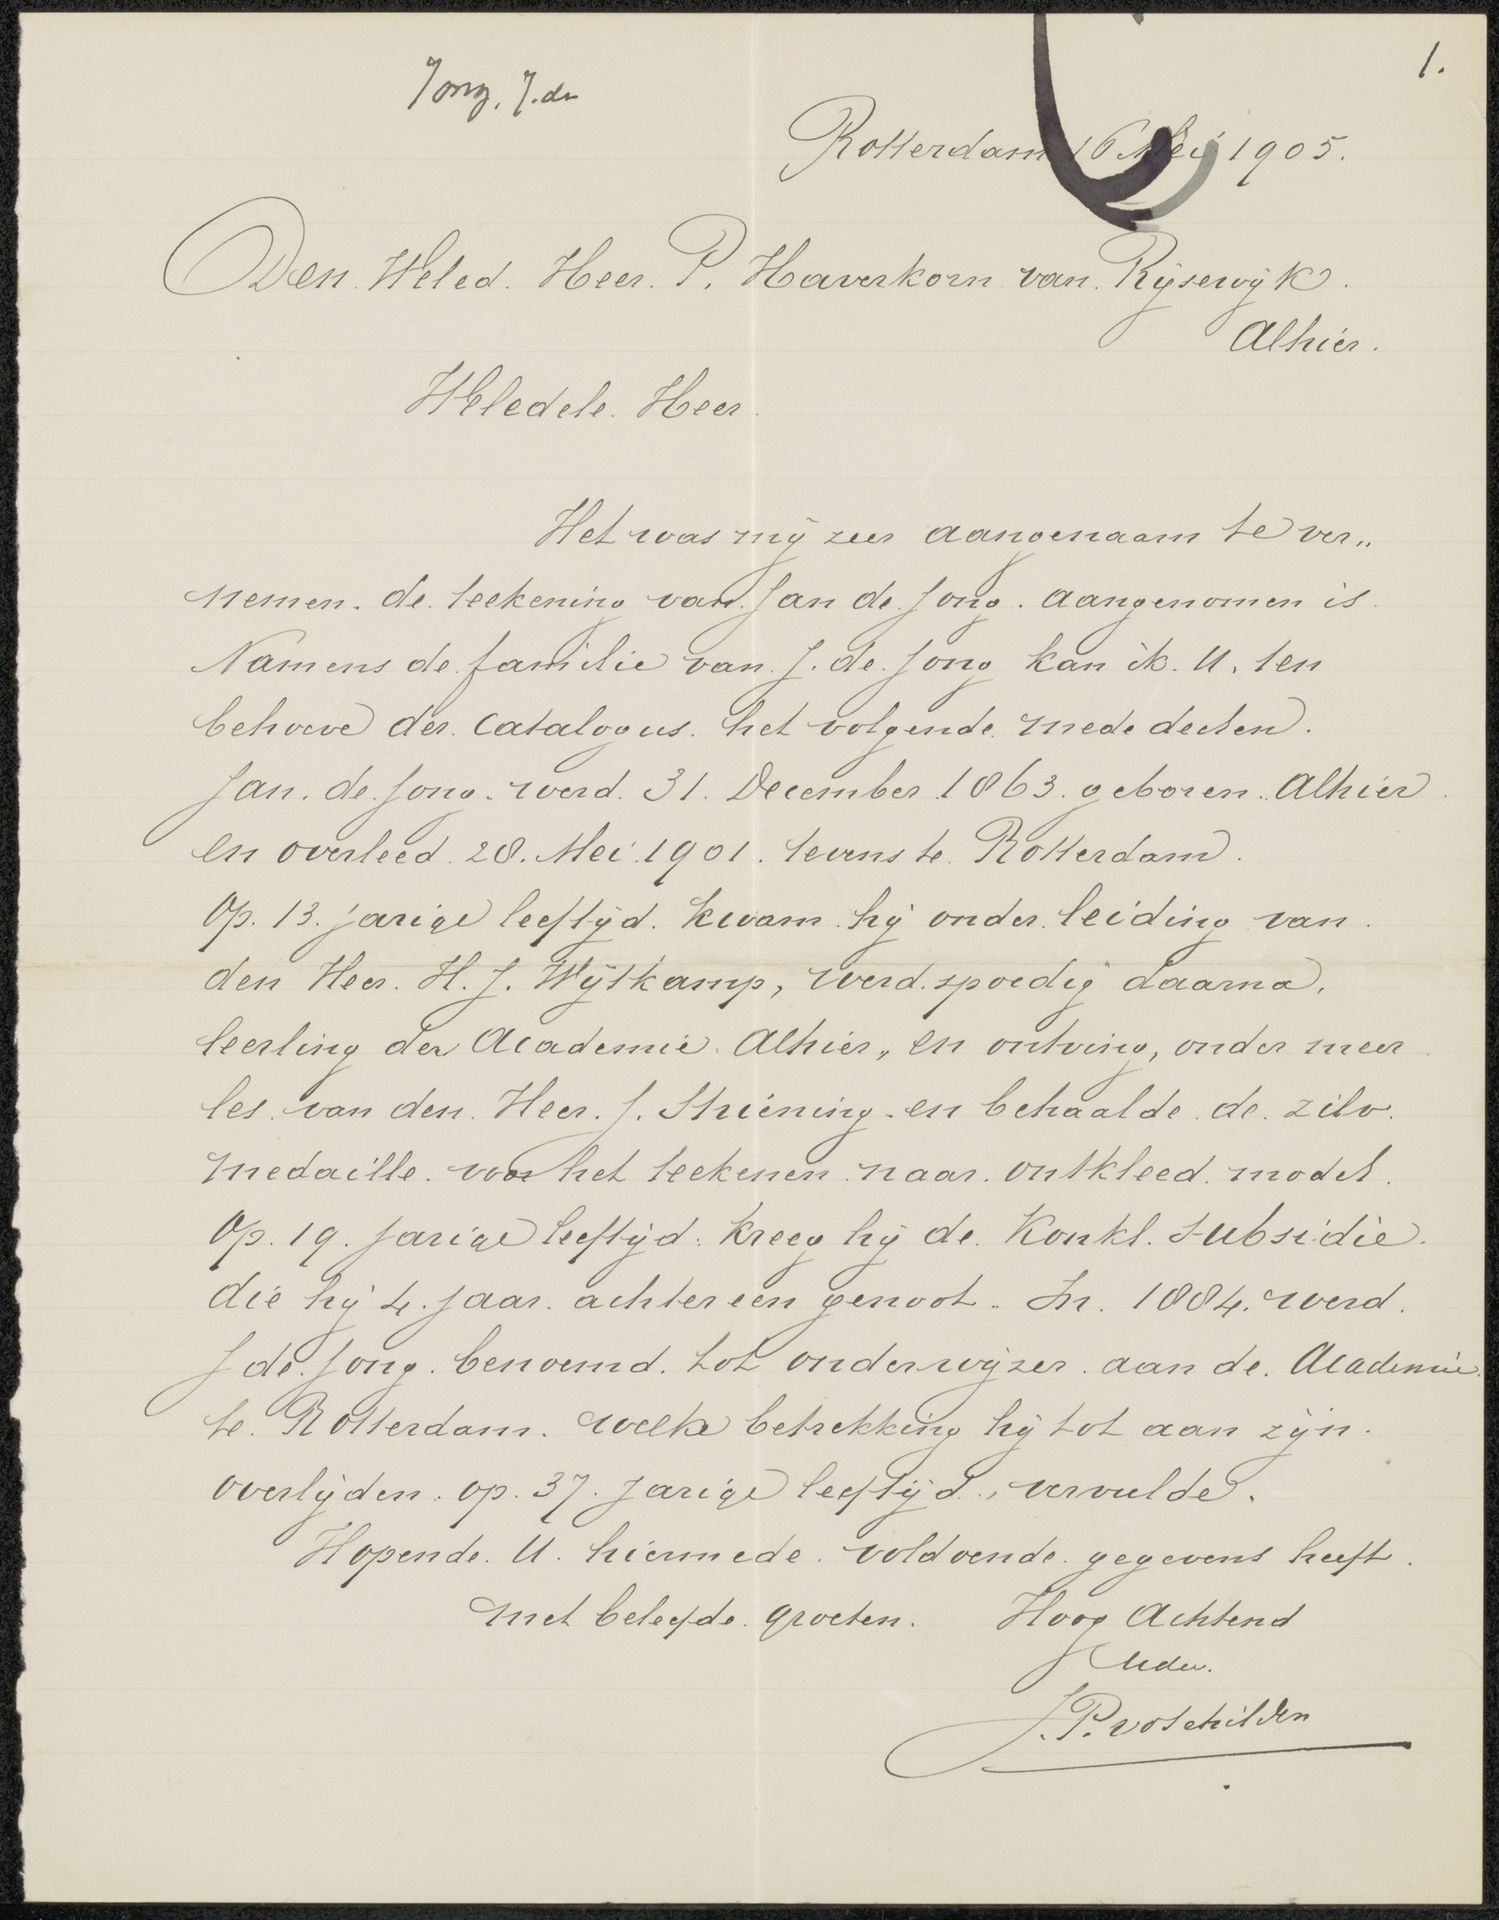 Jong, J. de
1.
Rotterdam 16 Mei 1905.
Den Weled. Heer. P. Haverkorn van Rijsewijk.
Alhier.
Weledele. Heer.
Het was mij zeer aangenaam te ver„
nemen. de teekening van Jan de Jong. aangenomen is.
Namens de familie van J. de Jong kan ik. U. ten
behoeve der. catalogus. het volgende. mededeelen.
Jan. de Jong. werd. 31. December 1863. geboren. Alhier.
en overleed. 28. Mei. 1901. tevens te. Rotterdam.
Op. 13. jarige leeftijd. kwam. hij onder. leiding van.
den Heer. H. J. Wijtkamp, werd. spoedig daarna.
leerling der Academie. Alhier, en ontving, onder meer.
les. van den. Heer. J. Striening. en behaalde. de. zilv.
medaille. voor het teekenen. naar. ontkleed. model.
Op. 19. jarige leeftijd. kreeg hij de. Konkl. subsidie.
die hij 4. jaar. achtereen genoot. In. 1884. werd.
J de. Jong. benoemd. tot onderwijzer. aan de. Academie.
te. Rotterdam. welke betrekking hij tot aan zijn.
overlijden. op. 37. jarige leeftijd, vervulde.
Hopende. U. hiermede. voldoende. gegevens heeft.
met beleefde. groeten. Hoog Achtend
Uedw.
J. P. v d Schilden